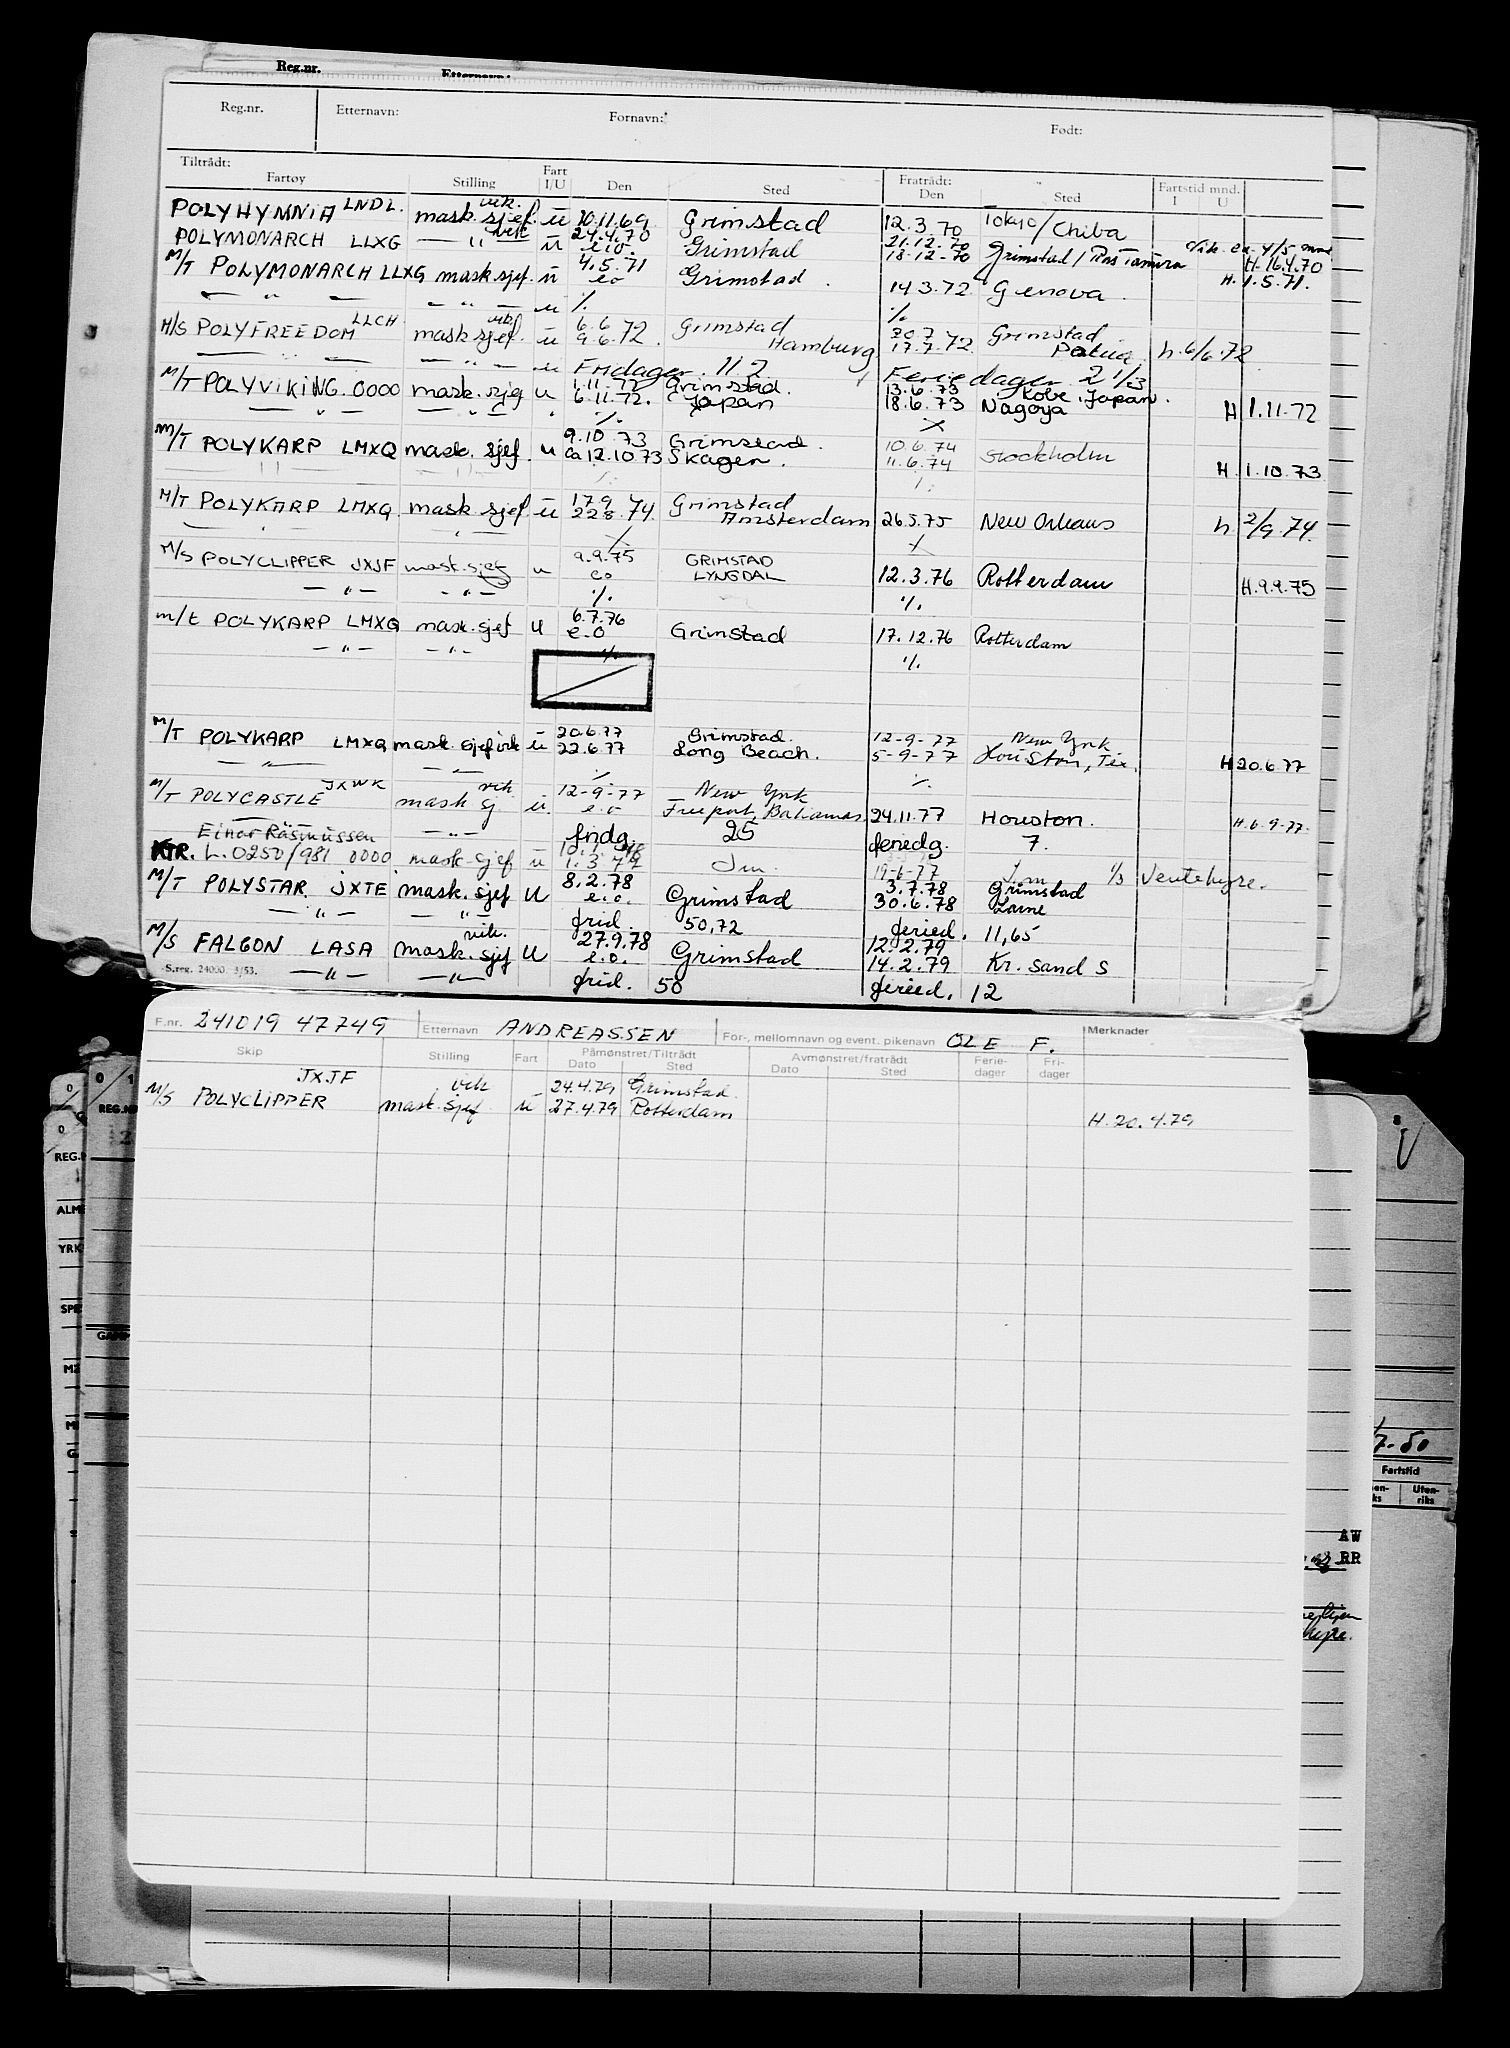 Reg.nr. Etternavn:
Reg.nr. Etternavn: Fornavn: Født:
Tiltrådt: Fart Fratrådt: Fartstid mnd.
Fartøy Stilling I/U Den Sted Den Sted I U
vik.
POLYHYMNIA LNDL. mask.sjef. u 20.11.69 Grimstad 12.3.70 Tokyo/Chiba
vik 24.4.70 21.12.70
POLYMONARCH LLXG — " — u e.o. Grimstad 18-12-70 Grimstad / Ras Tanura H. 16.4.70
4.5.71
M/T POLYMONARCH LLXG mask.sjef. u eo Grimstad. 14.3.72 Genova. H. 1.5.71.
— " — — " — u ./. ./.
LLCH vik 6.6 Grimstad 20.7 Grimstad
M/S POLYFREEDOM mask sjef. u 9.6.72. Hamburg 17.7.72 h. 6/6.72
— " — — " — u Fridager. 11 2 Feriedager 2 1/3
1.11.72 Grimstad. 13.6.73 Kobe, Japan.
M/T POLYVIKING. 0000 mask.sjef u 6.11.72. Japan 18.6.73 Nagoya H 1.11.72
— " — — " — ./. ./.
9.10.73 Grimstad. 10.6.74
M/T POLYKARP LMXQ mask. sjef. u ca 12.10.73 Skagen. 11.6.74 Stockholm H. 1.10.73
./. ./.
17.9 Grimstad
M/T POLYKARP LMXQ. mask sjef. u 22.8.74. Amsterdam 26.5.75 New Orleans h 2/9.74.
— " — — " — ./. ./.
9.9.75 GRIMSTAD
M/S POLYCLIPPER JXJF mask.sjef u eo LYNGDAL 12.3.76 Rotterdam H.9.9.75
— " — — " — ./. ./.
6.7.76
m/t POLYKARP LMXQ mask.sjef u e.o Grimstad 17.12.76 Rotterdam
— " — — " — ./. ./.
20.6.77 Grimstad. 12-9-77 New York
M/T POLYKARP LMXQ mask. sjef vik u 22.6.77 Long Beach. 5-9-77 Houston, Tex. H 20.6.77
— " — — " — ./. ./.
JXWK vik 12-9-77 New York
M/T POLYCASTLE mask sj u. e.o Freeport, Bahamas 24.11.77 Houston. H.6-9-77.
Einar Rasmussen — " — fridg. 25 feriedg. 7.
KTR. L.0250/981 0000 mask-sjef u 1.3 Jm. 19-6-77 Jm 1/3 Ventehyre.
8.2.78 3.7.78 Grimstad
M/T POLYSTAR JXTE mask. sjef U e.o. Grimstad 30.6.78 Larne
— " — — " — frid. 50,72 feried. 11,65
vik. 27.9.78 12.2.79
M/S FALCON LASA mask.sjef U e.o. Grimstad 14.2.79 Kr. sand S
— " — — " — frid. 50 feried. 12
S.reg. 24000. 3/53.
F.nr. 241019 47749 Etternavn ANDREASSEN For-, mellomnavn og event. pikenavn OLE F. Merknader
Skip Stilling Fart Påmønstret/Tiltrådt Avmønstret/fratrådt Ferie- Fri-
Dato Sted Dato Sted dager dager
JXJF vik 24.4.79 Grimstad.
M/S POLYCLIPPER mask.sjef u 27.4.79 Rotterdam
H. 20.4.79
REG.NR
REG.N
ALM
YRK
SPE
7-50
Fartstid
Uten-
riks
AW
RR